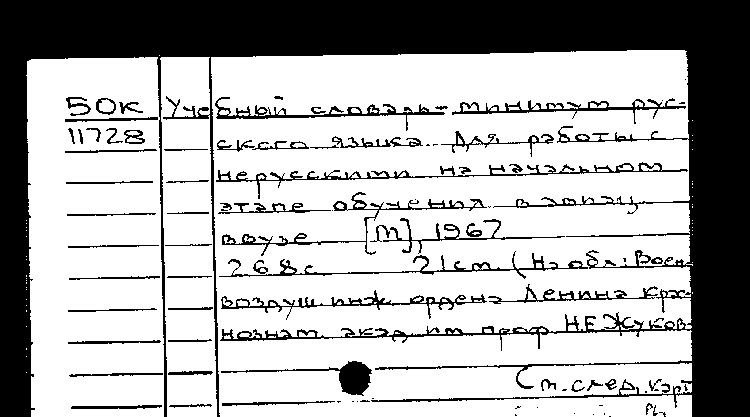 50К Учебный словарь-минимум рус-
11728 ского языка. Для работы с
нерусскими на начальном
этапе обучения в
ввузе. [М], 1967
268с. 21см. (На обл.: Воен.
воздуш. инж. ордена Ленина крас
нознам. акад. им. проф. Н.Е.Жуков-
См. след. карт